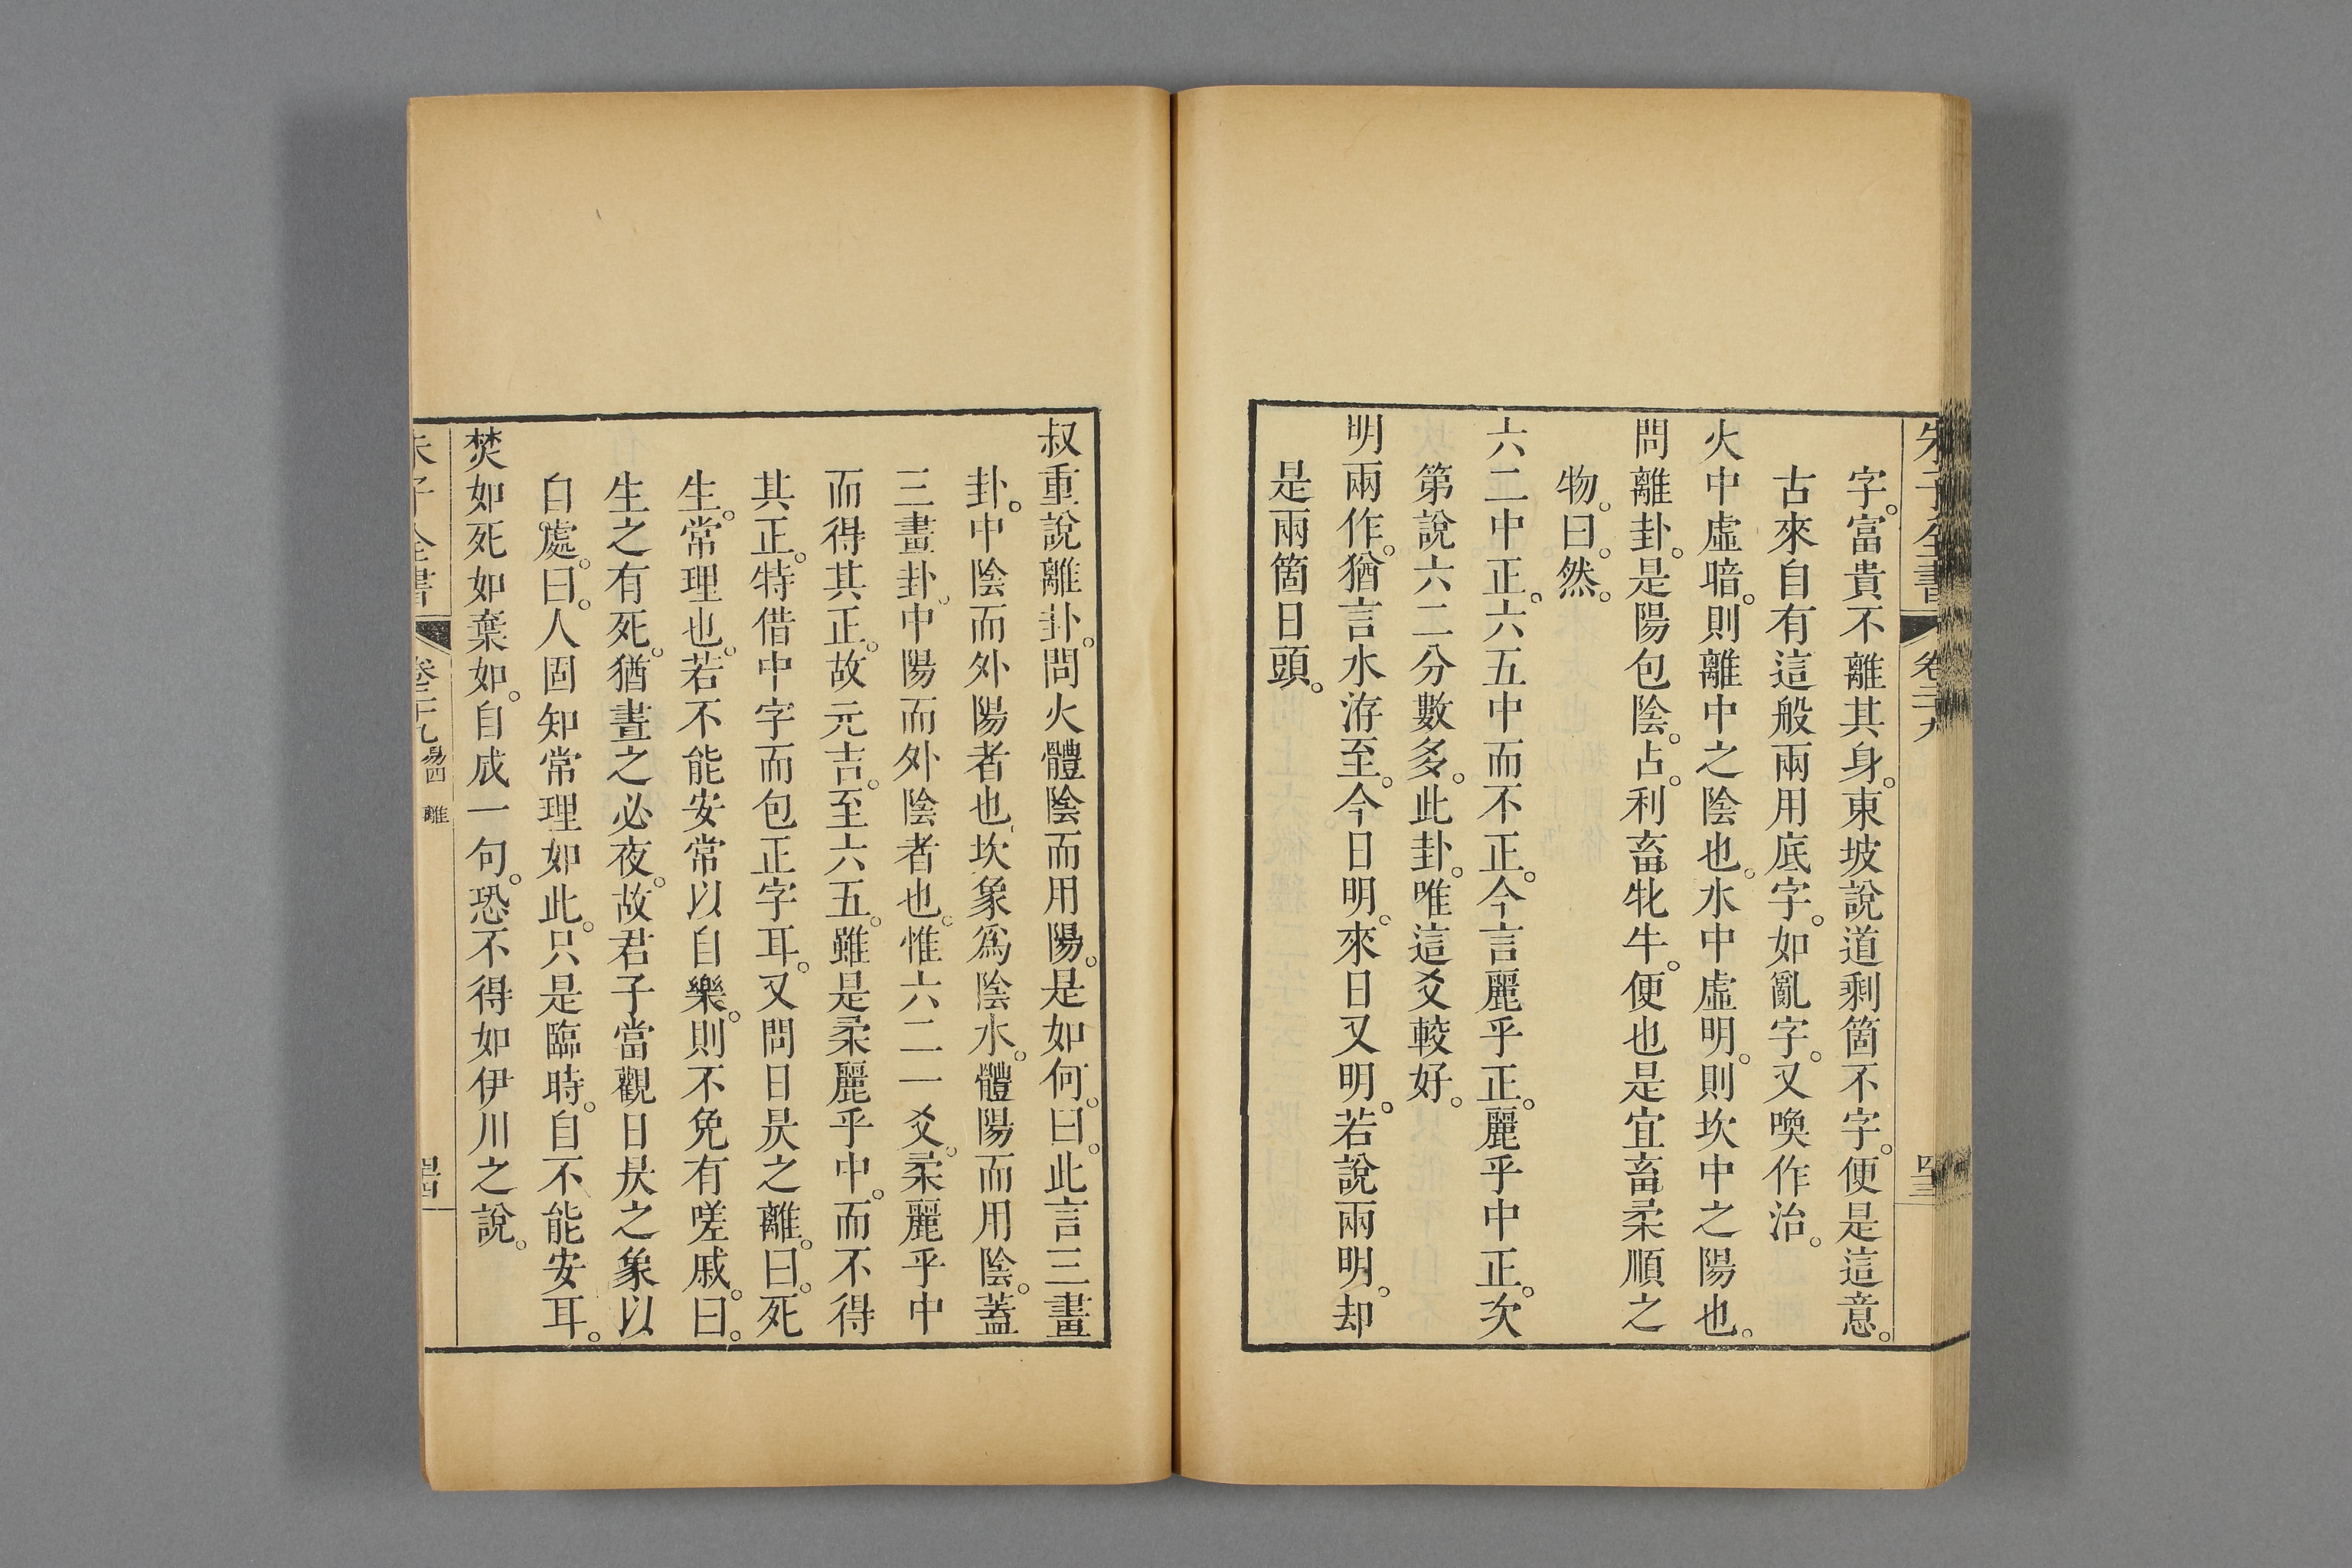 朱子全書 卷二十九 四十三
字。富貴不離其身。東坡說道剩箇不字。便是這意。
古來自有這般兩用底字。如亂字。又喚作治。
火中虛暗。則離中之陰也。水中虛明。則坎中之陽也。
問離卦。是陽包陰。占。利畜牝牛。便也是宜畜柔順之
物。曰。然。
六二中正。六五中而不正。今言麗乎正。麗乎中正。次
第說六二分數多。此卦。唯這爻較好。
明兩作。猶言水洊至。今日明。來日又明。若說兩明。却
是兩箇日頭。
叔重說離卦。問火體陰而用陽。是如何。曰。此言三畫
卦。中陰而外陽者也。坎象爲陰水。體陽而用陰。蓋
三畫卦。中陽而外陰者也。惟六二一爻。柔麗乎中
而得其正。故元吉。至六五。雖是柔麗乎中。而不得
其正。特借中字而包正字耳。又問日昃之離。曰。死
生。常理也。若不能安常以自樂。則不免有嗟戚。曰。
生之有死。猶晝之必夜。故君子當觀日昃之象以
自處。曰。人固知常理如此。只是臨時。自不能安耳。
焚如死如棄如。自成一句。恐不得如伊川之說。
朱子全書 卷二十九 易四 離 四十四